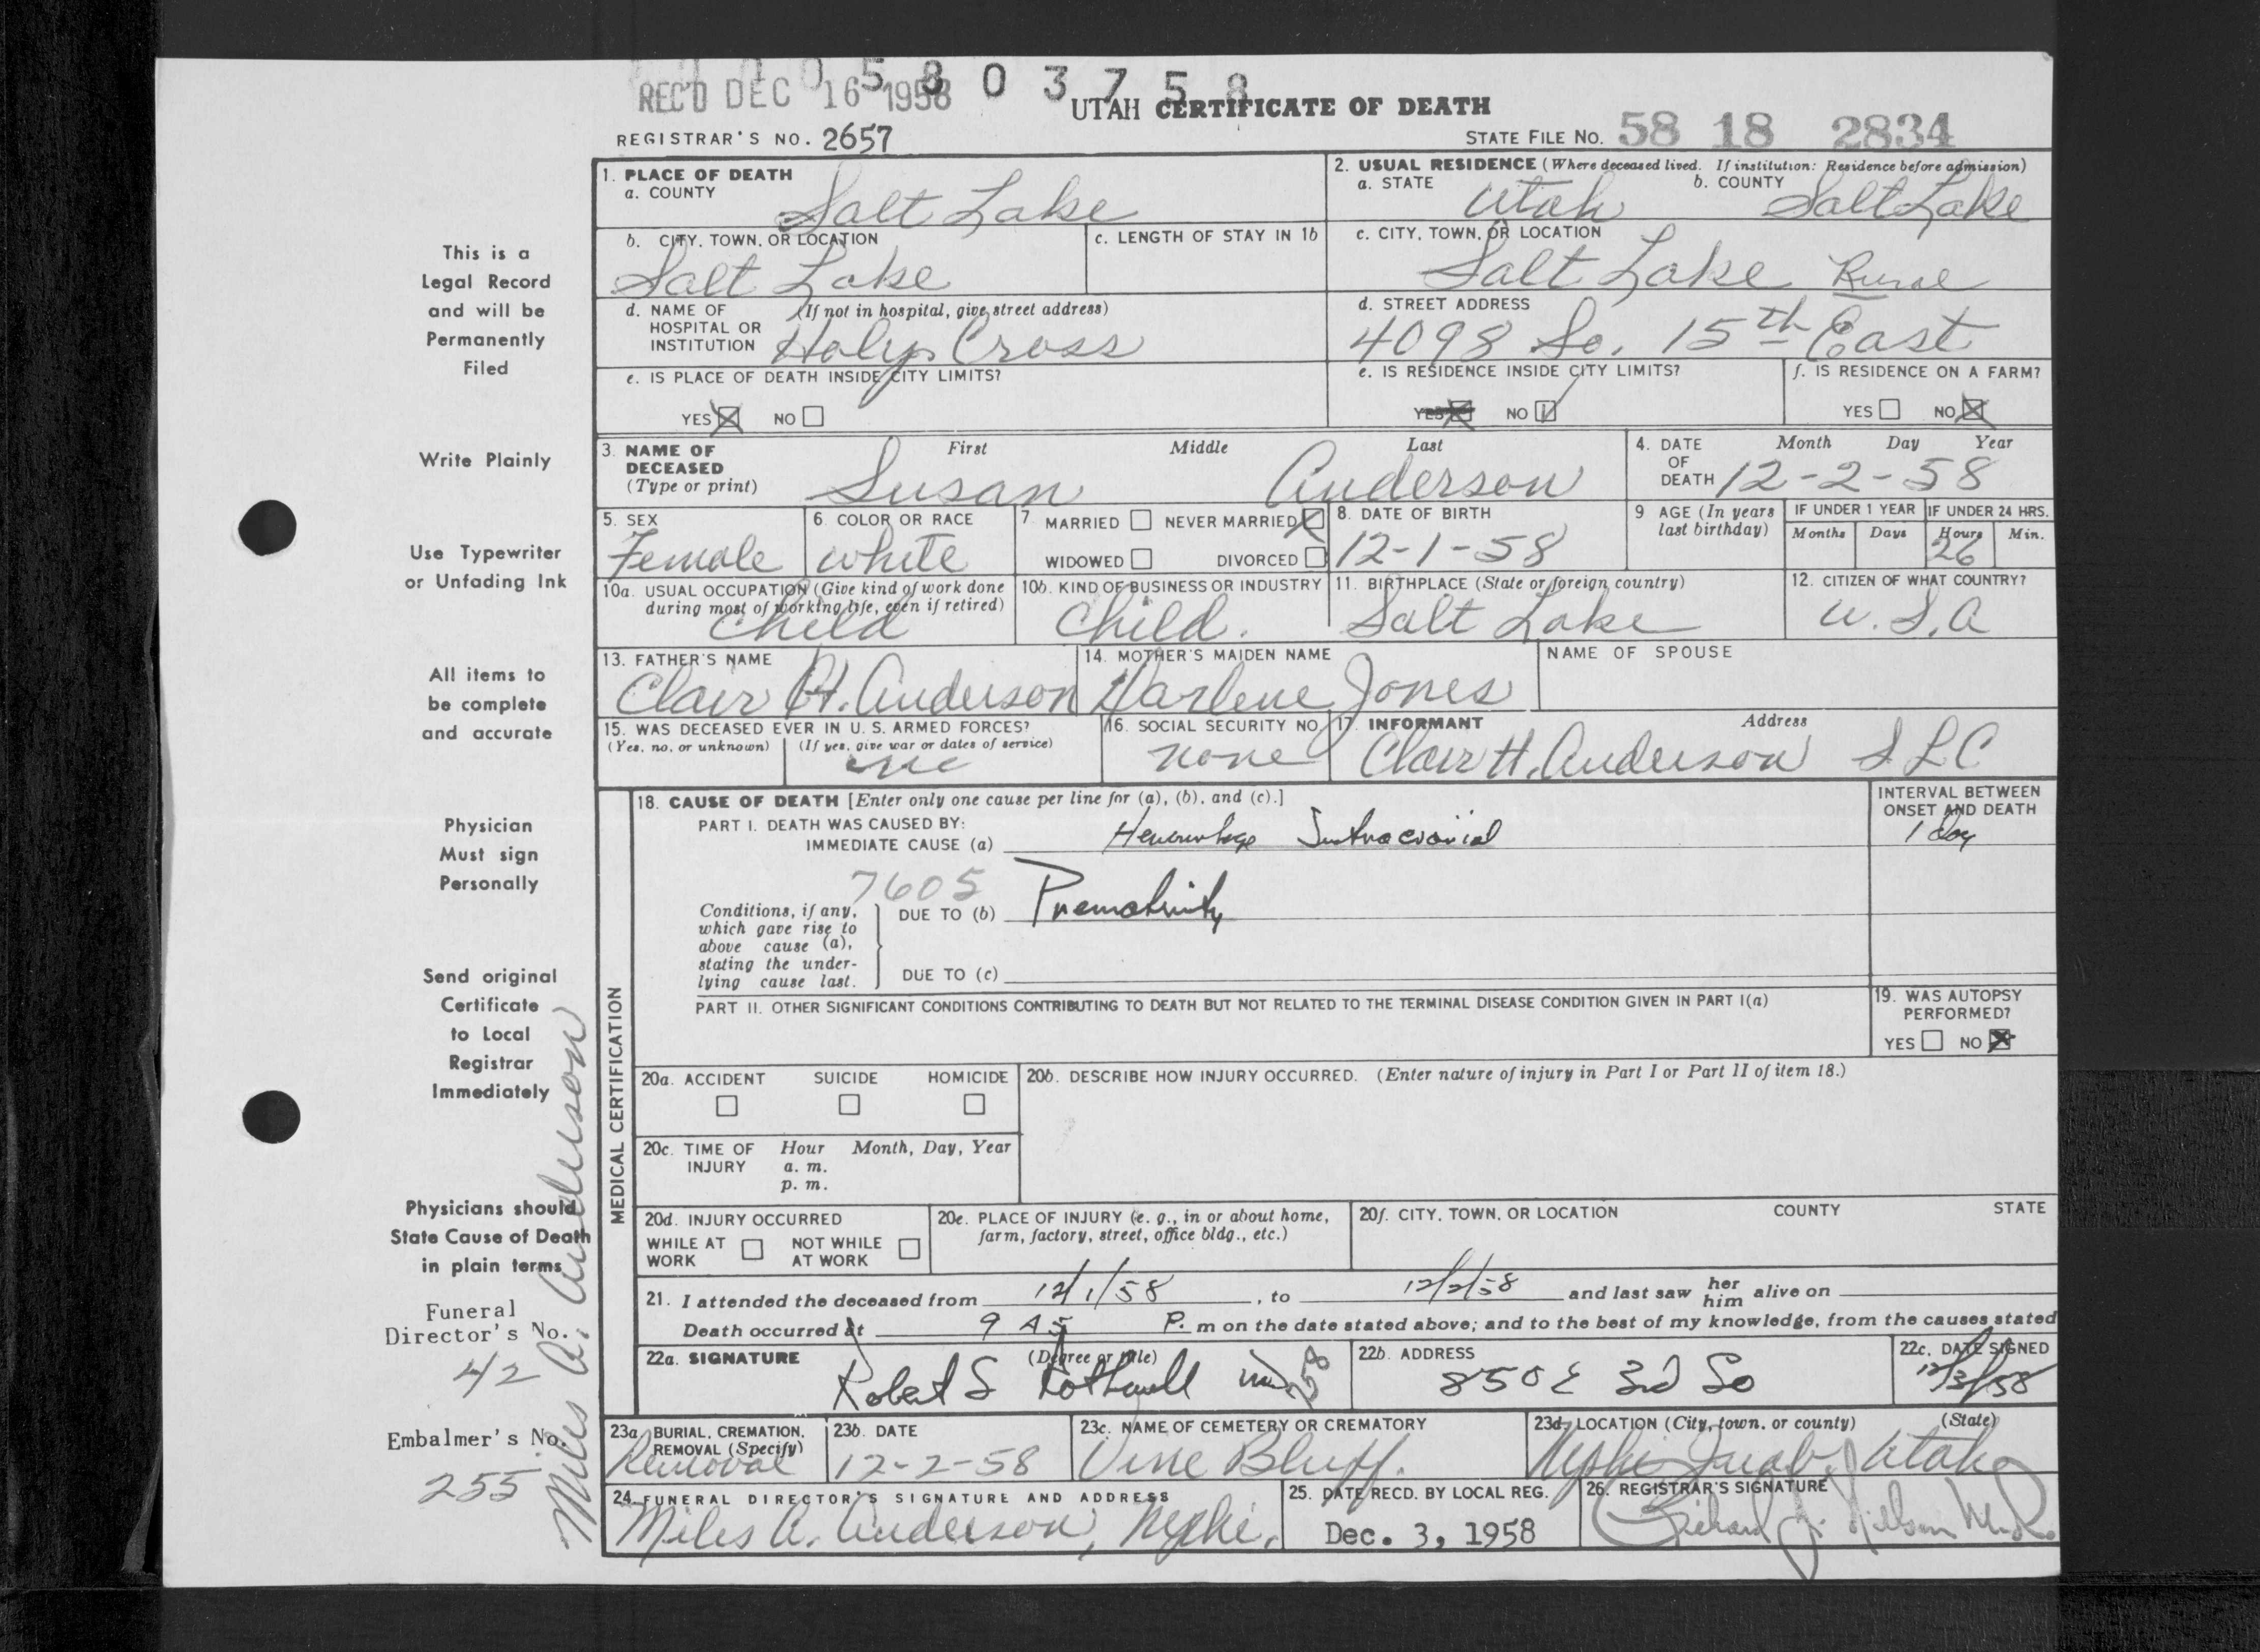 REC'D DEC 16 1958
5 8 0 3 7 5 8
UTAH CERTIFICATE OF DEATH
REGISTRAR'S NO. 2657
STATE FILE NO. 58 18 2834
1. PLACE OF DEATH
a. COUNTY Salt Lake
2. USUAL RESIDENCE (Where deceased lived. If institution: Residence before admission)
a. STATE Utah b. COUNTY Salt Lake
b. CITY, TOWN, OR LOCATION Salt Lake
c. LENGTH OF STAY IN 1b
c. CITY, TOWN, OR LOCATION Salt Lake Rural
d. NAME OF HOSPITAL OR INSTITUTION (If not in hospital, give street address) Holy Cross
d. STREET ADDRESS 4098 So. 15th East
e. IS PLACE OF DEATH INSIDE CITY LIMITS?
YES NO
e. IS RESIDENCE INSIDE CITY LIMITS?
YES NO
f. IS RESIDENCE ON A FARM?
YES NO
3. NAME OF DECEASED (Type or print) First Middle Last
Susan Anderson
4. DATE OF DEATH Month Day Year
12-2-58
5. SEX Female
6. COLOR OR RACE White
7. MARRIED NEVER MARRIED
WIDOWED DIVORCED
8. DATE OF BIRTH 12-1-58
9 AGE (In years last birthday)
IF UNDER 1 YEAR Months Days
IF UNDER 24 HRS. Hours Min.
26
10a. USUAL OCCUPATION (Give kind of work done during most of working life, even if retired) Child
10b. KIND OF BUSINESS OR INDUSTRY Child.
11. BIRTHPLACE (State or foreign country) Salt Lake
12. CITIZEN OF WHAT COUNTRY? U.S.A
13. FATHER'S NAME Clair H. Anderson
14. MOTHER'S MAIDEN NAME Darlene Jones
NAME OF SPOUSE
15. WAS DECEASED EVER IN U. S. ARMED FORCES?
(Yes, no, or unknown) (If yes, give war or dates of service)
16. SOCIAL SECURITY NO. none
17. INFORMANT Address
Clair H. Anderson SLC
MEDICAL CERTIFICATION
18. CAUSE OF DEATH [Enter only one cause per line for (a), (b), and (c).]
INTERVAL BETWEEN ONSET AND DEATH
PART I. DEATH WAS CAUSED BY:
IMMEDIATE CAUSE (a) Hemorrhage Intracranial 1 day
7605
Conditions, if any, which gave rise to above cause (a), stating the underlying cause last.
DUE TO (b) Prematurity
DUE TO (c)
PART II. OTHER SIGNIFICANT CONDITIONS CONTRIBUTING TO DEATH BUT NOT RELATED TO THE TERMINAL DISEASE CONDITION GIVEN IN PART I(a)
19. WAS AUTOPSY PERFORMED?
YES NO
20a. ACCIDENT SUICIDE HOMICIDE
20b. DESCRIBE HOW INJURY OCCURRED. (Enter nature of injury in Part I or Part II of item 18.)
20c. TIME OF INJURY Hour Month, Day, Year
a. m.
p. m.
20d. INJURY OCCURRED
WHILE AT WORK NOT WHILE AT WORK
20e. PLACE OF INJURY (e. g., in or about home, farm, factory, street, office bldg., etc.)
20f. CITY, TOWN, OR LOCATION COUNTY STATE
21. I attended the deceased from 12/1/58, to 12/2/58 and last saw her him alive on
Death occurred at 9 45 P. m on the date stated above; and to the best of my knowledge, from the causes stated
22a. SIGNATURE (Degree or title)
Robert S Rothwell MD
258
22b. ADDRESS 850 E 3rd So
22c. DATE SIGNED 12/3/58
23a. BURIAL, CREMATION, REMOVAL (Specify) Removal
23b. DATE 12-2-58
23c. NAME OF CEMETERY OR CREMATORY Vine Bluff.
23d. LOCATION (City, town, or county) (State)
Nephi Juab, Utah
24. FUNERAL DIRECTOR'S SIGNATURE AND ADDRESS
Miles A. Anderson, Nephi.
25. DATE RECD. BY LOCAL REG.
Dec. 3, 1958
26. REGISTRAR'S SIGNATURE
Richard J. Nielsen
This is a
Legal Record
and will be
Permanently
Filed
Write Plainly
Use Typewriter
or Unfading Ink
All items to
be complete
and accurate
Physician
Must sign
Personally
Send original
Certificate
to Local
Registrar
Immediately
Physicians should
State Cause of Death
in plain terms
Funeral
Director's No.
42
Embalmer's No.
255
Miles A. Anderson